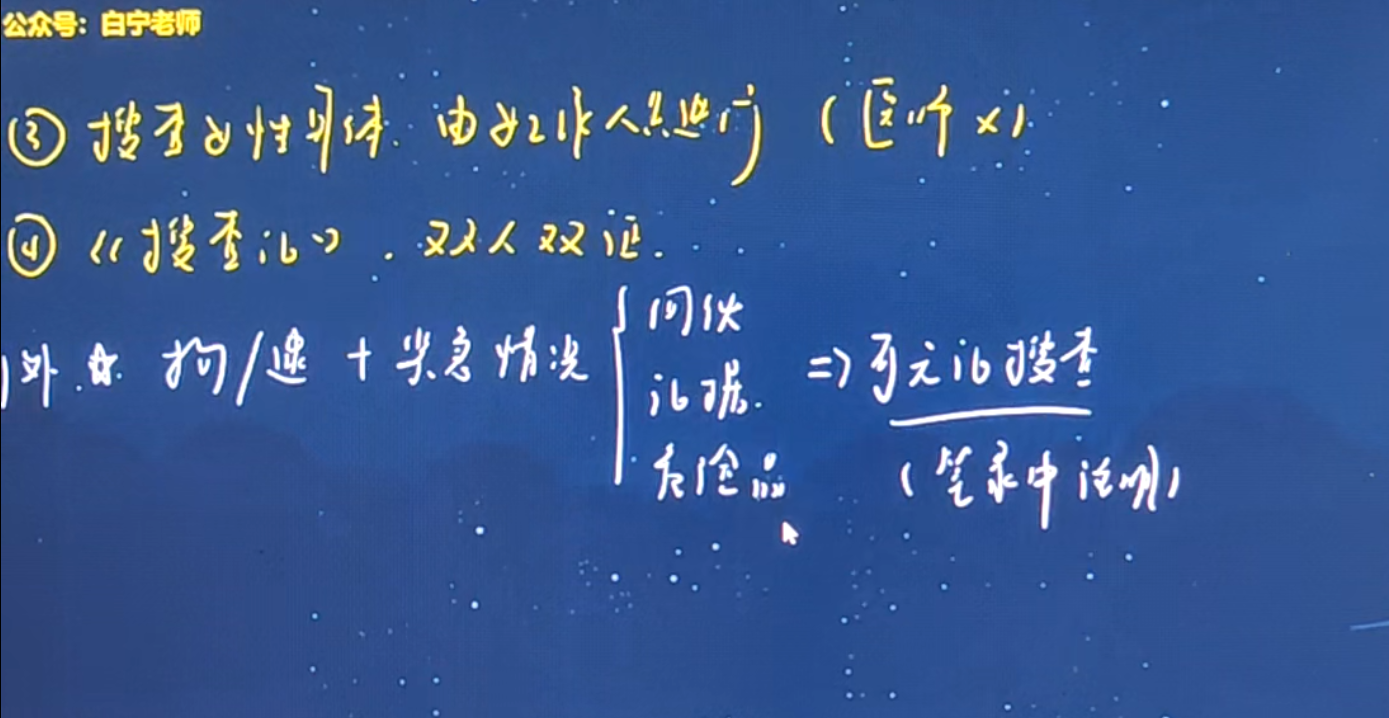 公众号：白宁老师
③ 搜查女性身体. 由女工作人员进行 （医师×）
④ 《搜查证》. 双人双证.
外.☆. 拘/逮 + 紧急情况 { 同伙 证据. 危险品 => 可无证搜查
（笔录中注明）